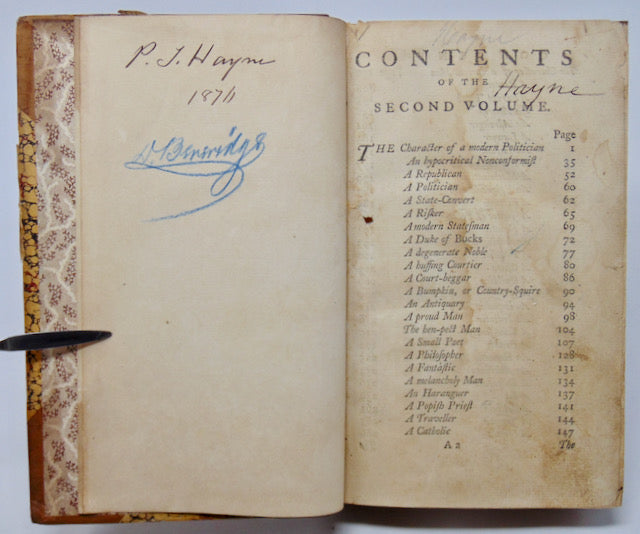 P. J. Hayne
1874
D. Beveridge
Hayne
CONTENTS
OF THE
Hayne
SECOND VOLUME.
Page
THE Character of a modern Politician 1
An hypocritical Nonconformiſt 35
A Republican 52
A Politician 60
A State-Convert 62
A Riſker 65
A modern Stateſman 69
A Duke of Bucks 72
A degenerate Noble 77
A huffing Courtier 80
A Court-beggar 86
A Bumpkin, or Country-Squire 90
An Antiquary 94
A proud Man 98
The hen-peƈt Man 104
A Small Poet 107
A Philoſopher 128
A Fantaſtic 131
A melancholy Man 134
An Haranguer 137
A Popiſh Prieſt 141
A Traveller 144
A Catholic 147
A 2 The